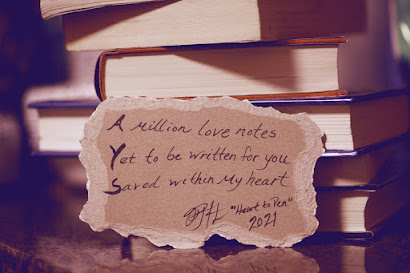 A million love notes
Yet to be written for you
Saved within My heart
"Heart to Pen"
2021